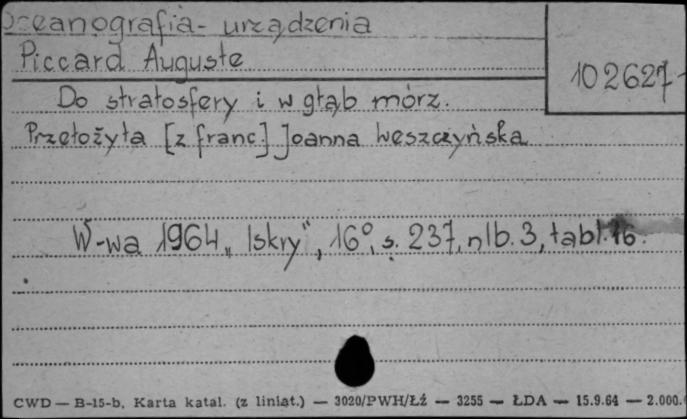 Oceanografia - urządzenia
Piccard Auguste
102627
Do stratosfery i w głąb mórz.
Przełożyła [z franc.] Joanna Węszczyńska
W-wa 1964 „Iskry", 16°, s. 237, nlb. 3, tabl. 16.
CWD — B-15-b, Karta katal. (z liniat.) — 3020/PWH/Łź — 3255 — ŁDA — 15.9.64 — 2.000.